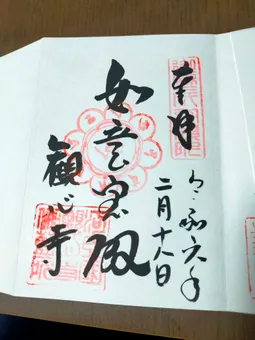 奉拝
令和六年
二月十八日
如意宝殿
観心寺